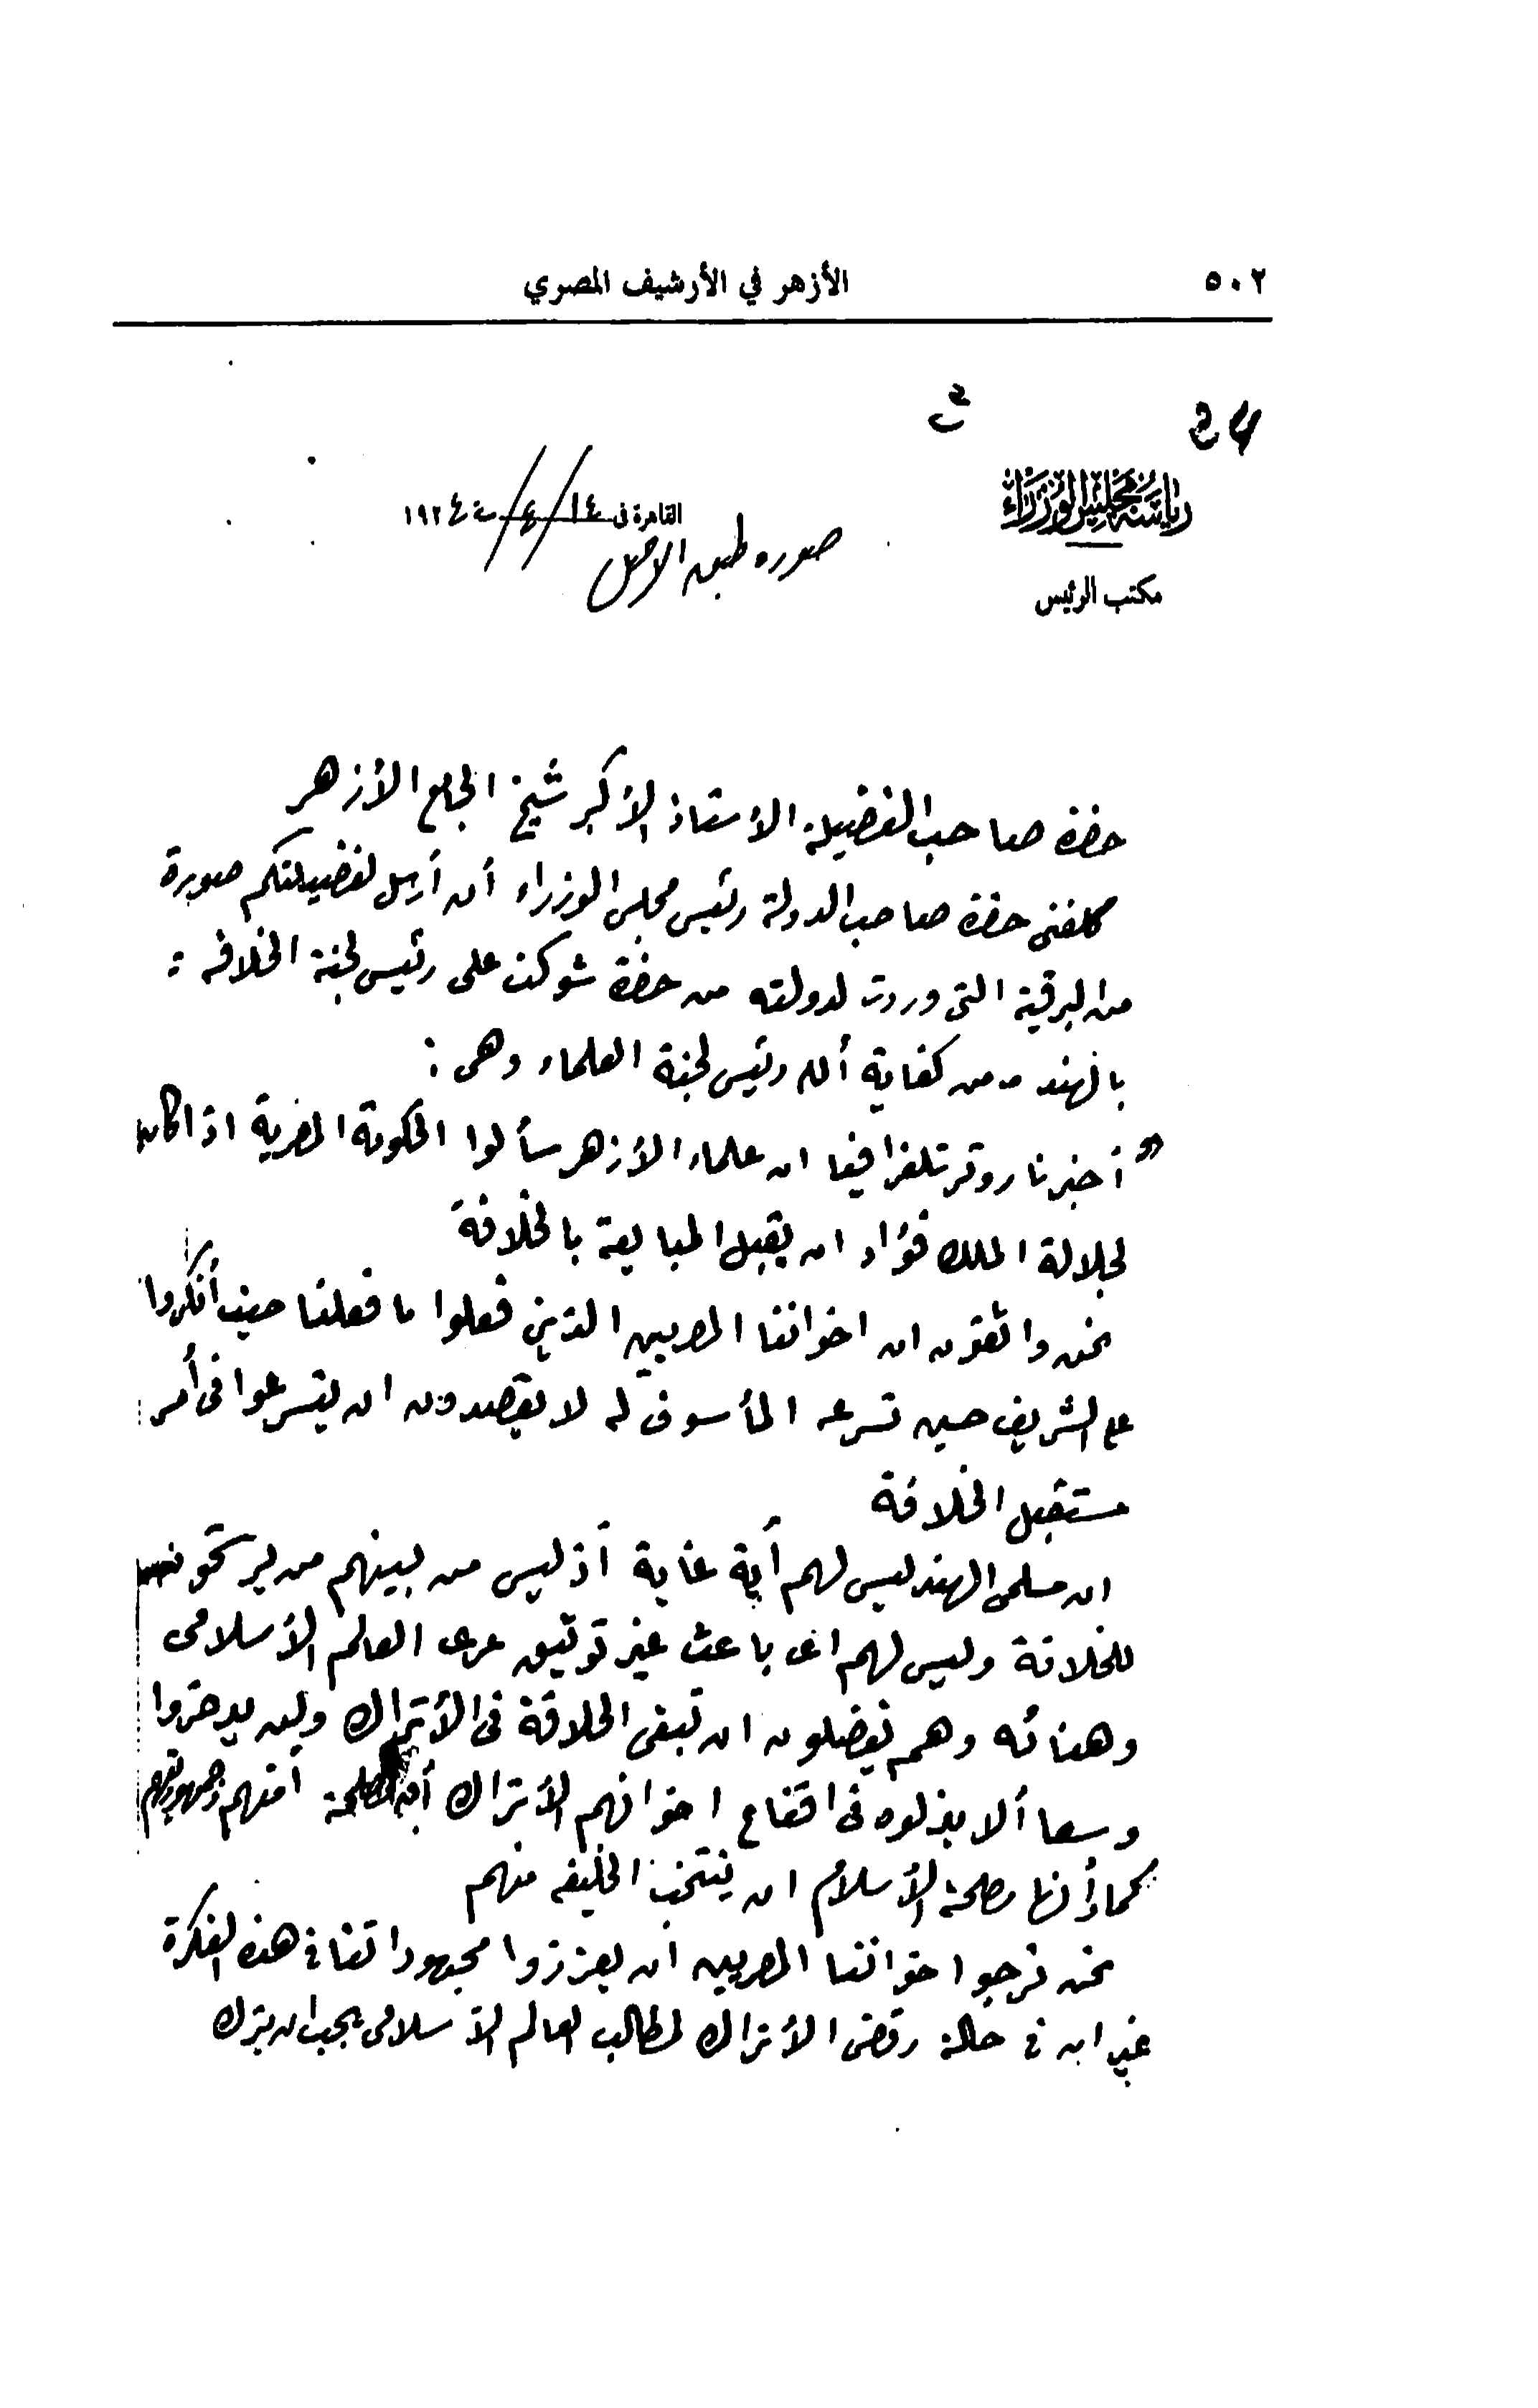 ٥٠٢ الأزهر في الأرشيف المصري
رياسة مجلس الوزراء
مكتب الرئيس
القاهرة في ١٤/٤/ سنة ١٩٢٤
صوره طبق الاصل
حضرة صاحب الفضيلة الأستاذ الأكبر شيخ الجامع الأزهر
كلفنى حضرة صاحب الدولة رئيس مجلس الوزراء أن أرسل لفضيلتكم صورة
من البرقية التى وردت لدولته من حضرة شوكت على رئيس لجنة الخلافه
بالهند ومن كفاية الله رئيس لجنة العلماء وهى :
" أخبرنا روتر تلغرافيا ان علماء الأزهر سألوا الحكومة المصرية اذا كان
لجلالة الملك فؤاد ان يقبل المبايعة بالخلافة
نحن واثقون ان اخواننا المصريين الذين فعلوا ما فعلنا حين أنكروا
على الشريف حسين تسرعه المأسوف له لا يقصدون ان يتسرعوا فى أمر
مستقبل الخلافة
ان مسلمى الهند ليس لهم أية غاية أذ ليس من بينهم من يرشحونه
للخلافة وليس لهم اى باعث غير توثيق عرى العالم الأسلامى
وهنائه وهم يفضلون ان تبقى الخلافة فى الأتراك ولن يدخروا
وسعا ألا بذلوه فى اقناع اخوانهم الأتراك أن لمصلحة أمتهم وجمهوريتهم
كما أنها مصلحة الأسلام ان ينتخب الخليفه منهم
نحن نرجوا اخواننا المصريين ان يعززوا مجهوداتنا فى هذه الفكرة
غير انه فى حالة رفض الأتراك لمطالب العالم الأسلامى يجب ان يترك